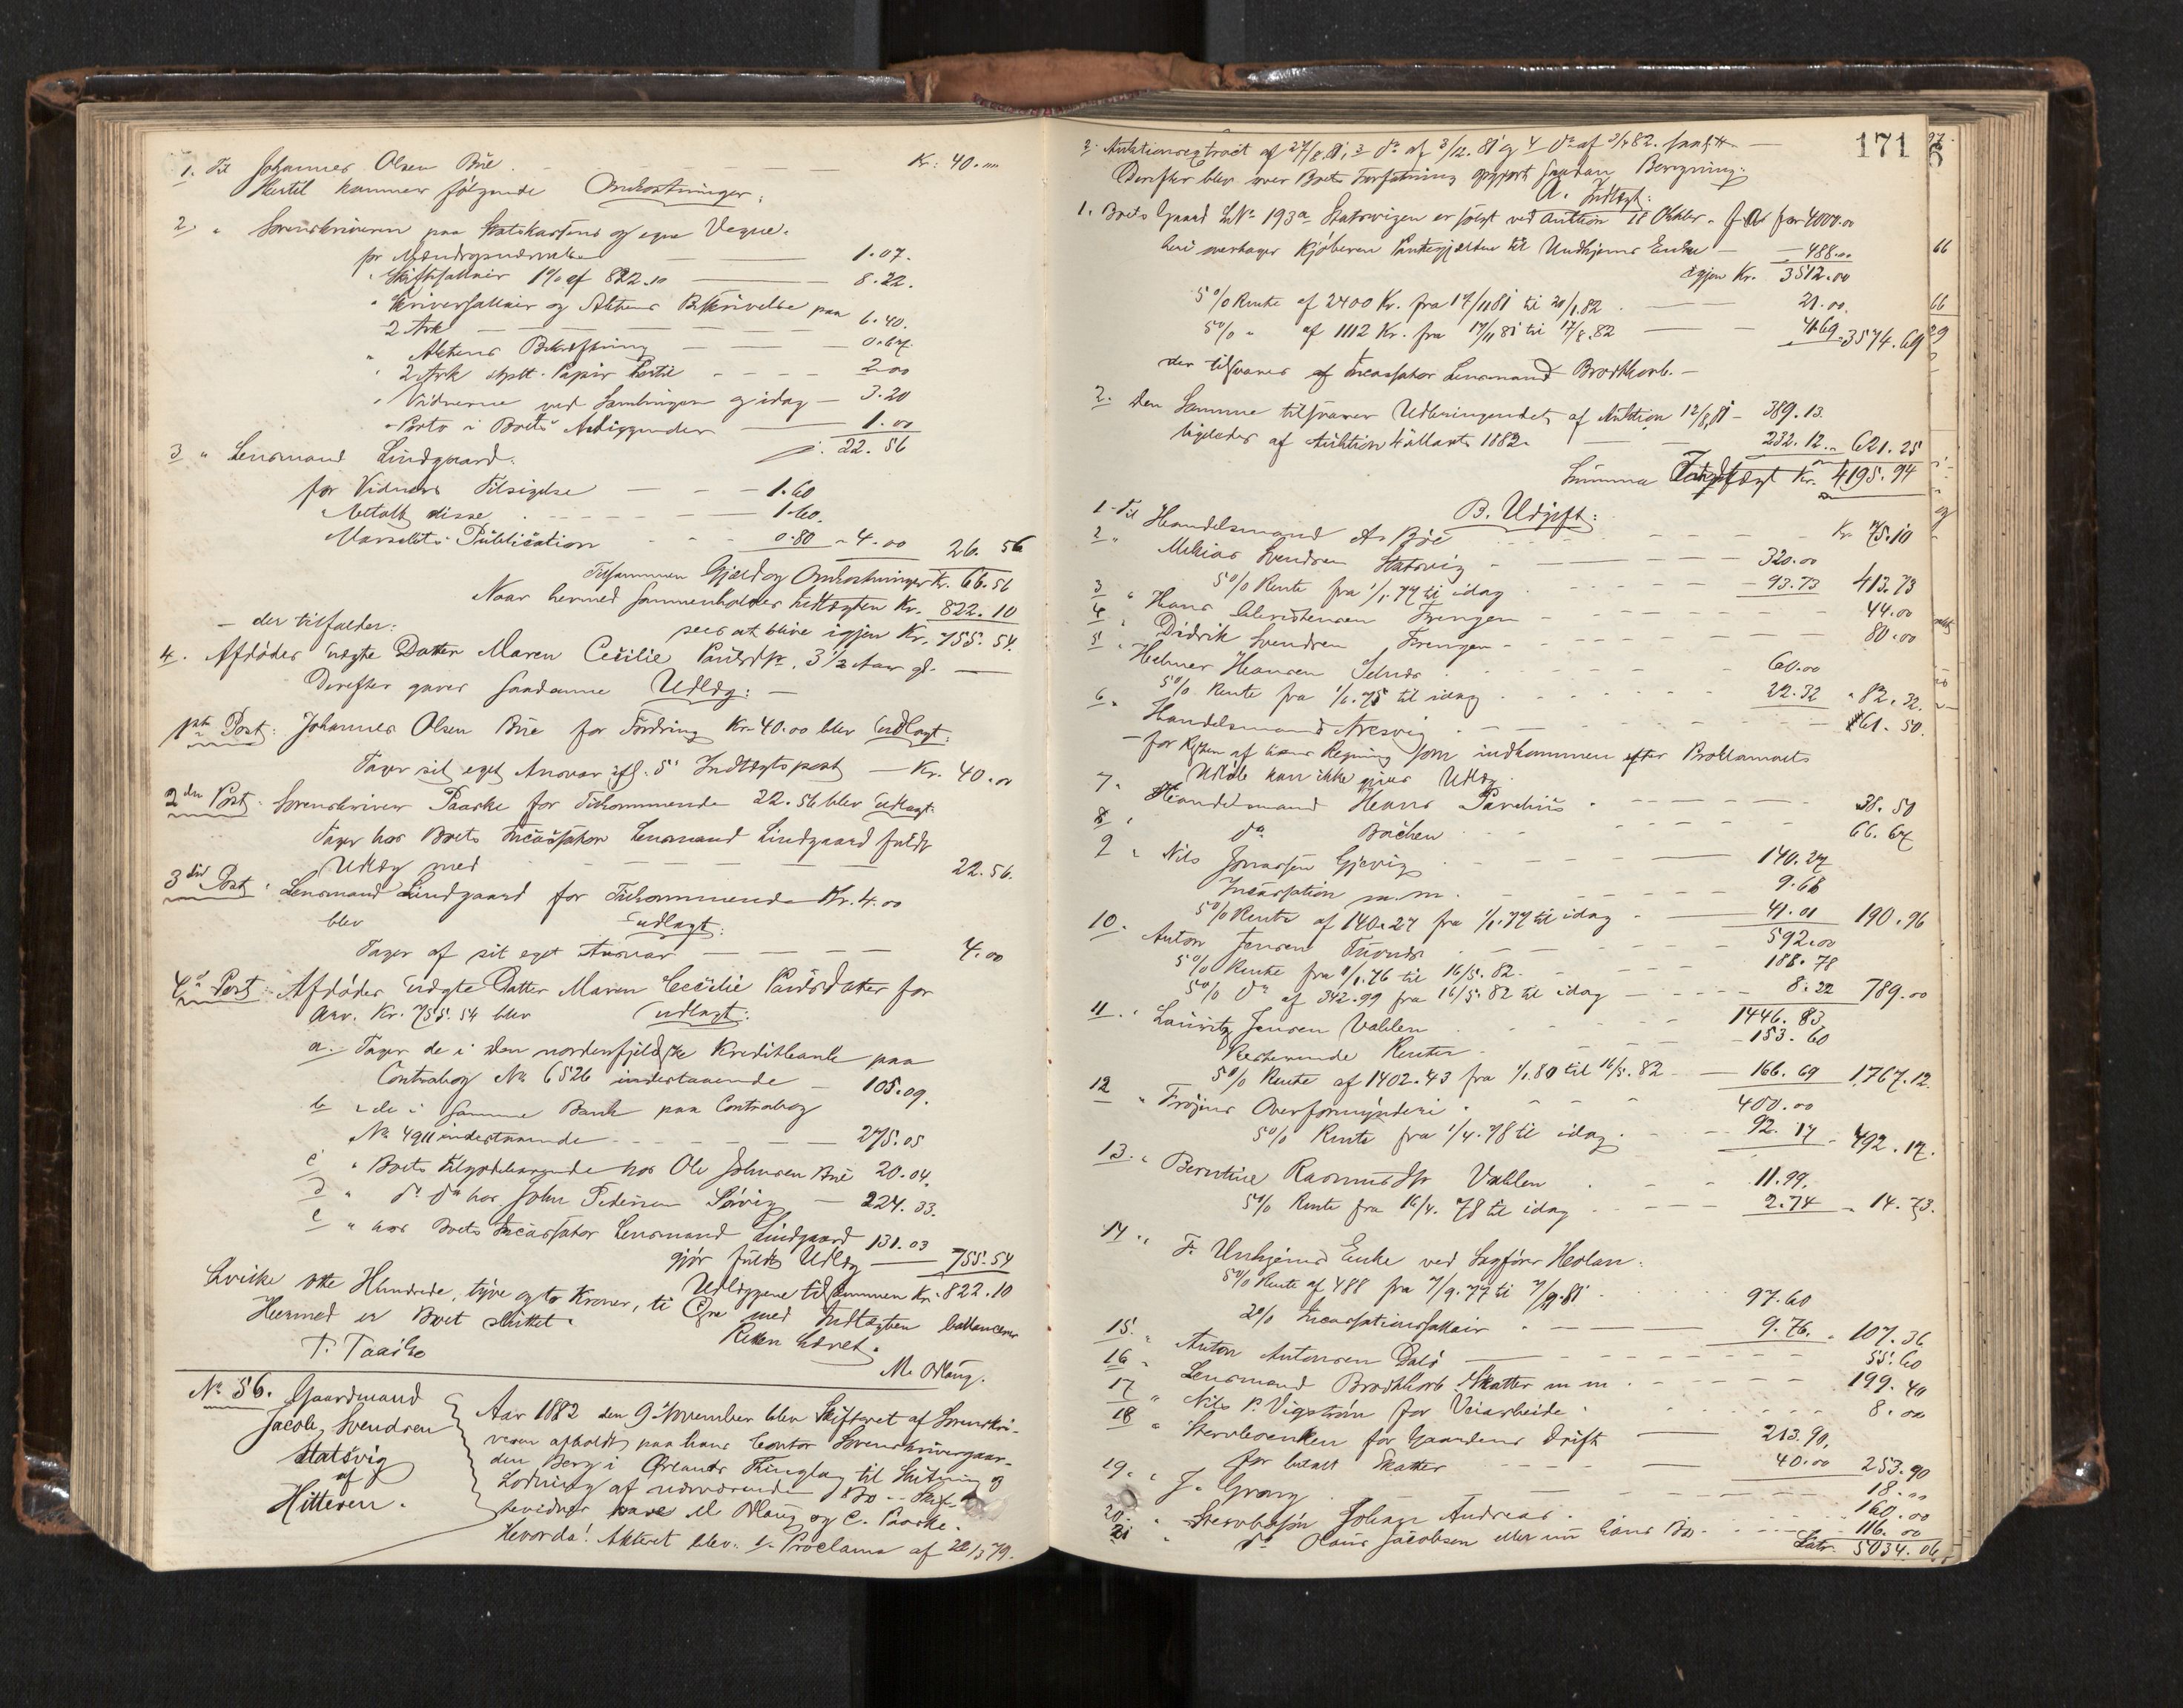 1. Til Johannes Olsen Bue — Kr. 40.00
Hertil kommer følgende Omkostninger:
2. " Sorenskriveren paa Statskassens og egne Vegne.
for 1.07.
" Skiftesallair 1% af 822.10 — 8.22.
" Skriversallair og Aktens Beskrivelse paa
2 Ark — 6.40.
" Aktens Bekræftning — 0.67.
" 2 Ark stplt. Papir hertil — 2.00
" Vidnerne ved Samlingen og idag — 3.20
" Porto i Boets Anliggender — 1.00
22.56
3 " Lensmand Lindgaard:
for Vidners Tilsigelse — 1.60
" Betalt disse — 1.60.
Publication — 0.80 " 4.00 26.56
Tilsammen Gjæld og Omkostninger Kr. 66.56
Naar hermed sammenholdes Indtægten Kr. 822.10
sees at blive igjen Kr. 755.54.
— der tilfalder:
4. Afdødes uægte Datter Maren Cecilie Paulsdtr. 3 1/2 Aar gl. —
Derefter gjøres saadanne Udlæg: —
1ste Post: Johannes Olsen Bue for Fordring Kr. 40.00 blev udlagt:
Tager sit eget Ansvar ifl. 5 Indtægtspost — Kr. 40.00
2den Post: Sorenskriver Paaske for Tilkommende 22.56 blev udlagt:
Tager hos Boets Incassator Lensmand Lindgaard fuldt
Udlæg med — 22.56.
3die Post: Lensmand Lindgaard for Tilkommende Kr. 4.00
blev udlagt:
Tager af sit eget Ansvar — 4.00
4de Post: Afdødes uægte Datter Maren Cecilie Paulsdatter for
Arv. Kr. 755.54 blev udlagt:
a. Tager de i den nordenfjeldske Kreditbank paa
Contrabog No 6526 indestaaende — 105.09.
b " de i samme Bank paa Contrabog
No 4911 indestaaende — 275.05
c " Boets Tilgodehavende hos Ole Johnsen Bue 20.04.
d " do do hos John Pedersen Sørvig — 224.33.
e " hos Boets Incassator Lensmand Lindgaard 131.03
gjør fuldt Udlæg — 755.54
Udlæggene tilsammen Kr. 822.10
hvilke otte Hundrede, tyve og to Kroner, ti Øre med Indtægten ballancerer
Hermed er Boet sluttet. Retten hævet.
T. Paaske M. Moung.
No 56. Gaardmand
Jacob Svendsen
Statsvig
af
Hitteren.
Aar 1882 den 9 November blev Skifteret af Sorenskri-
veren afholdt paa hans Contor Sorenskrivergaar-
den Berg i Ørlands Thinglag til Slutning og
Lodning af nærværende Bo. Skif-
tevidner vare M. Moung og C. Paaske.
Hvorda! Akteret blev: 1. Proclama af 22/3 79.
171
2. Auktionsextract af 27/8.81, 3 do af 3/12.81 og 4 do af 3/7 82.
Derefter blev over Boets Forfatning opgjort saadan Beregning:
A. Indtægt:
1. Boets Gaard LNo 193a Statsvigen er solgt ved Auktion 18 Oktbr. f. A. for 4000.00
heri overtager Kjøberen Pantegjælden til Unkjems Enke — 488.00
igjen Kr. 3512.00
5% Rente af 2400 Kr. fra 17/11 81 til 20/1.82 — 21.00.
5% " af 1112 Kr. fra 17/11 81 til 17/8.82 — 41.69 " 3574.69
der tilsvares af Incassator Lensmand Brodtkorb. —
2. Den Samme tilsvarer Udbringendet af Auktion 12/8.81 — 389.13
ligeledes af Auktion 4 Marts 1882. — 232.12 " 621.25
Summa Indtægt Kr. 4195.94
B. Udgift:
1. Til Handelsmand A. Bøe — Kr. 75.10
2. " Mekias Svendsen Statsvig — 320.00
5% Rente fra 1/1.77 til idag — 93.73 413.73
3 " Hans Christensen Frengen — 44.00
4 " Didrik Svendsen Frengen — 80.00
5 " Helmer Hansen Selnes — 60.00
5% Rente fra 1/6.75 til idag — 22.32 " 82.32.
6 " Handelsmand Aresvig — 61.50.
— for Resten af hans Regning som indkommen efter Proklamaets
Udløb kan ikke gjøres Udlæg.
7. " Handelsmand Hans Parelius — 38.50
8 " do Bachen — 66.67
9 " Nils Jonassen Gjevig — 140.27
Incassation m.m. — 9.68
5% Rente af 140.27 fra 1/1.77 til idag — 41.01 190.96
10. " Anton Jensen — 592.00
5% Rente fra 1/1.76 til 16/5.82. — 188.78
5% do af 342.99 fra 16/5.82 til idag — 8.22 789.00
11. " Lauritz Jensen Vahlen — 1446.83
Resterende Renter — 153.60
5% Rente af 1402.43 fra 1/1.80 til 16/5.82 — 166.69 1767.12.
12 " Frøiens Overformynderi — 400.00
5% Rente fra 1/4.78 til idag — 92.17 " 492.17.
13. " Berntine Rasmusdtr Vahlen — 11.99.
5% Rente fra 16/4.78 til idag — 2.74 " 14.73.
14 " F. Unkjems Enke ved Sagfører Holan:
5% Rente af 488 fra 7/9.77 til 7/9.81 — 97.60
2% Incassationssallair — 9.76. " 107.36
15. " Anton Antonsen Dalø — 55.60
16 " Lensmand Brodtkorb Skatter m m — 199.40
17 " Nils P. Vigstrøm for Veiarbeide — 8.00
18 " Stervboenken for Gaardens Drift — 213.90.
for betalt Skatter — 40.00 253.90
19. " J. Grong — 18.00
20. " Stervbosøn Johan Andreas — 160.00
21 " do Olaus Jacobsen eller nu hans Bo — 116.00
Latr. 5034.06